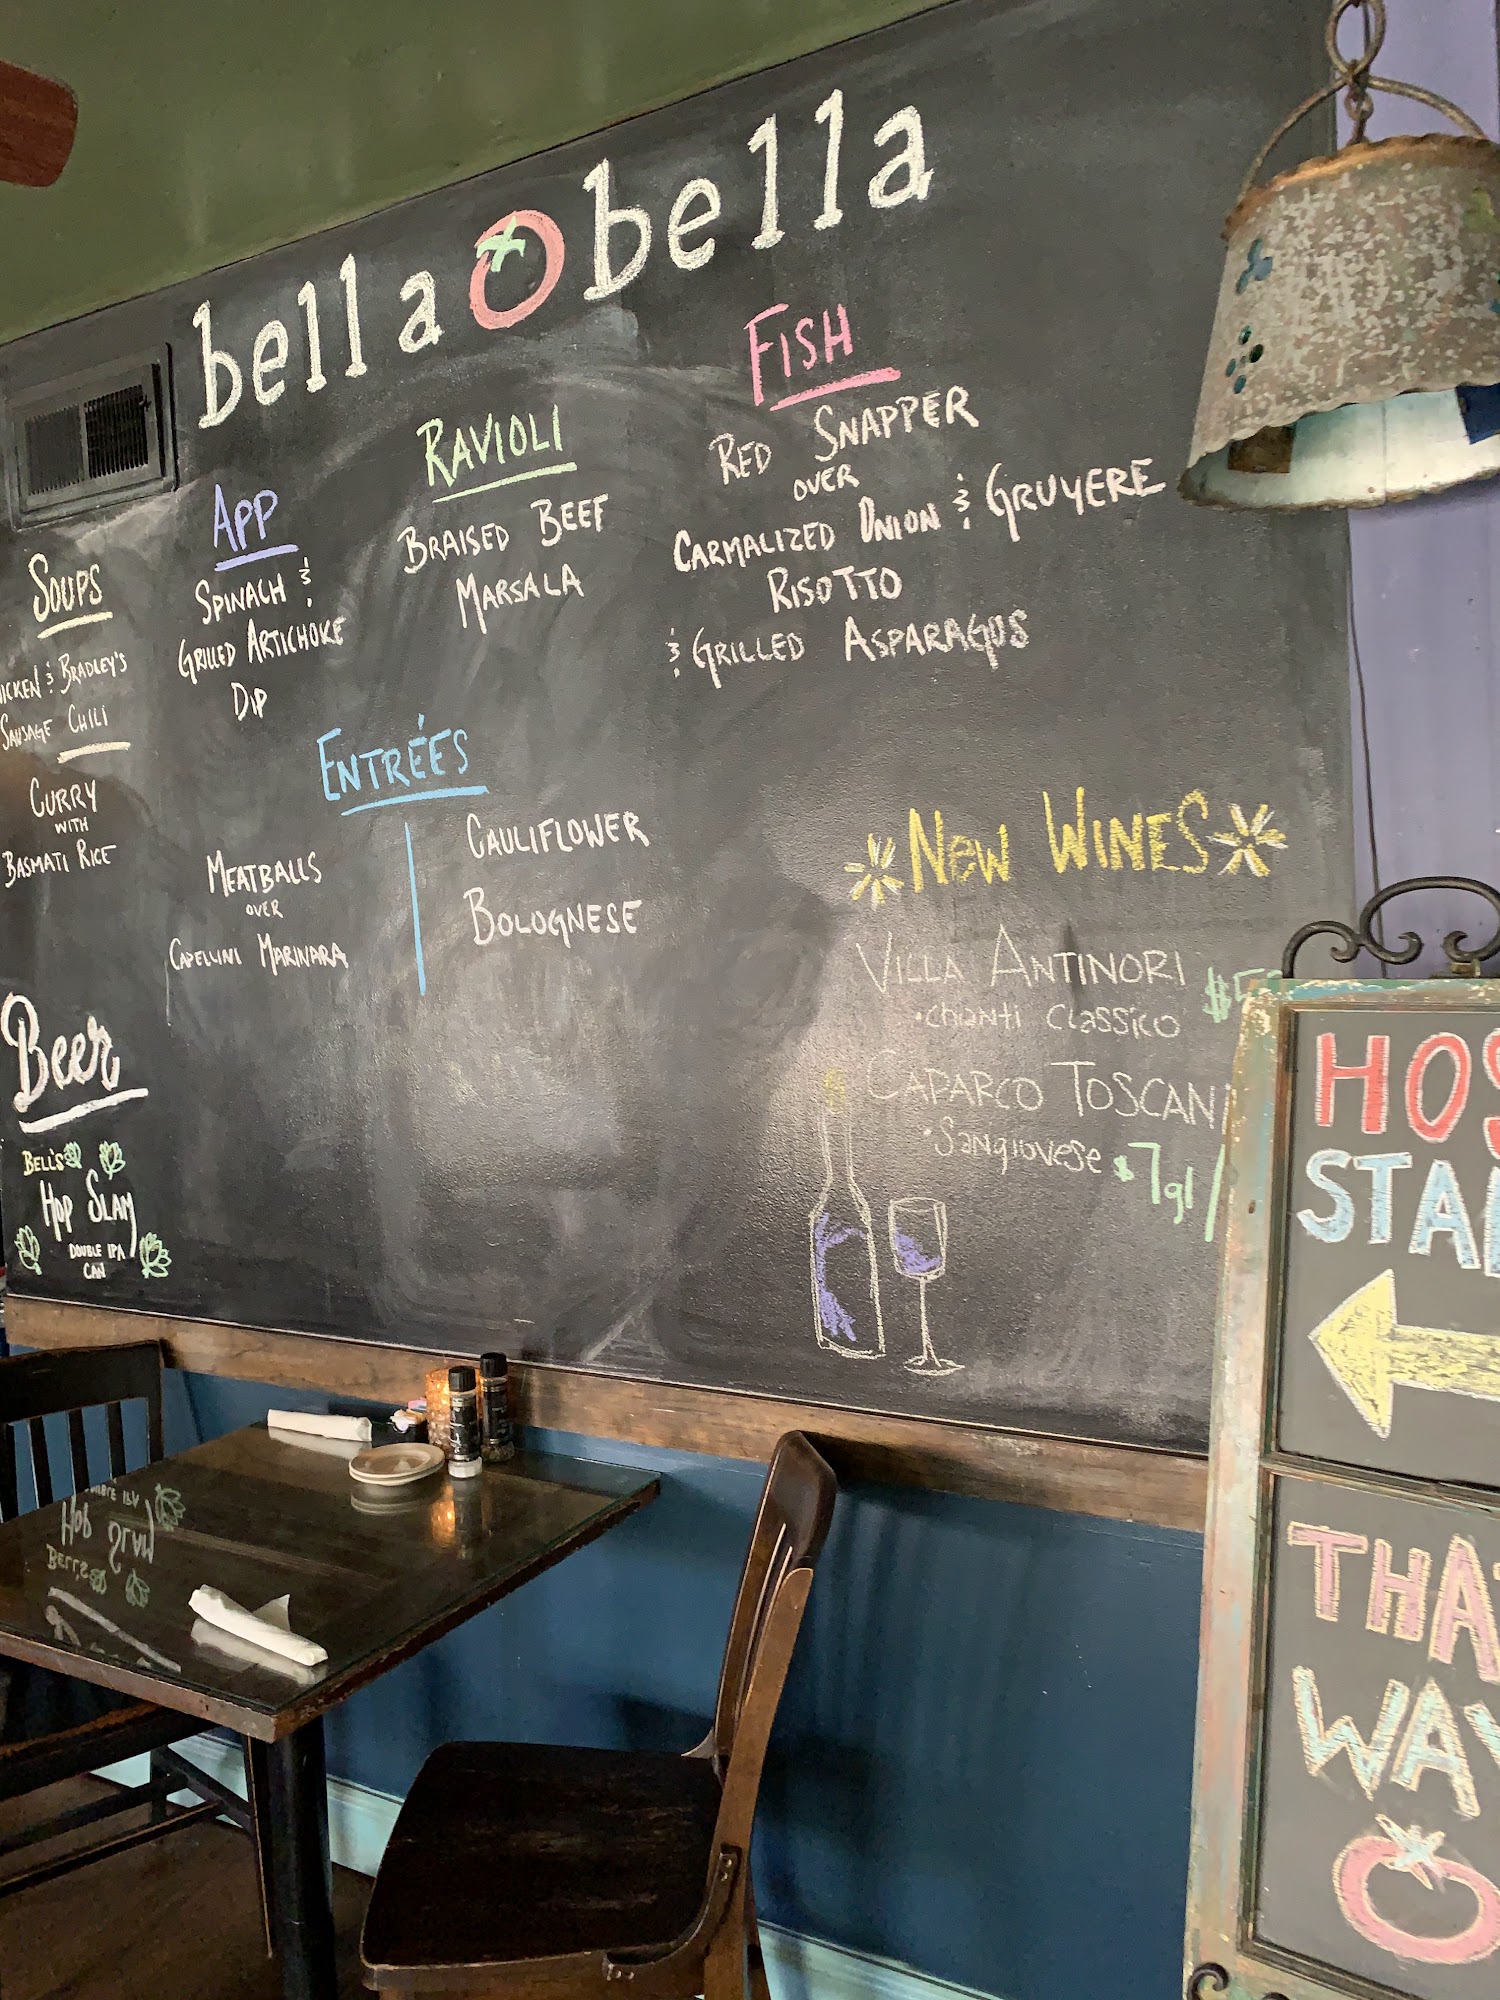 bella bella
Soups
& Bradley's
Sausage Chili
Curry
with
Basmati Rice
App
Spinach &
Grilled Artichoke
Dip
Ravioli
Braised Beef
Marsala
Fish
Red Snapper
over
Carmalized Onion & Gruyere
Risotto
& Grilled Asparagus
Entrées
Meatballs
over
Capellini Marinara
Cauliflower
Bolognese
Beer
Bell's
Hop Slam
Double IPA
Can
New Wines
Villa Antinori
•Chianti Classico
Caparco Toscani
•Sangiovese $7gl/
HOS
STA
THA
WAY